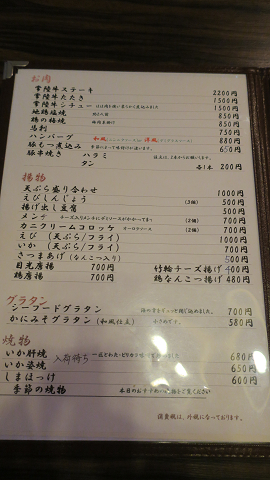 お肉
常陸牛ステーキ 2200円
常陸牛たたき 1500円
常陸牛シチュー 1500円
地鶏塩焼 850円
鶏の梅焼 850円
馬刺 750円
ハンバーグ 和風 洋風 880円
豚もつ煮込み 季節によって味付けが違います 650円
豚串焼き ハラミ
タン 各1本 200円
揚物
天ぷら盛り合わせ 1000円
えびしんじょう (3個) 500円
揚げ出し豆腐 500円
メンチ チーズ入りメンチにデミソースがかかってます (2個) 700円
カニクリームコロッケ オーロラソース (2個) 700円
えび (天ぷら/フライ) 1000円
いか (天ぷら/フライ) 700円
さつまあげ(なんこつ入り) 500円
目光唐揚 700円 竹輪チーズ揚げ 400円
鶏唐揚 700円 鶏なんこつ揚げ 480円
グラタン
シーフードグラタン 700円
かにみそグラタン(和風仕立) 小さめです。 580円
焼物
いか肝焼 入荷待ち 680円
いか姿焼 650円
しまほっけ 600円
季節の焼物 本日のおすすめ をご覧ください